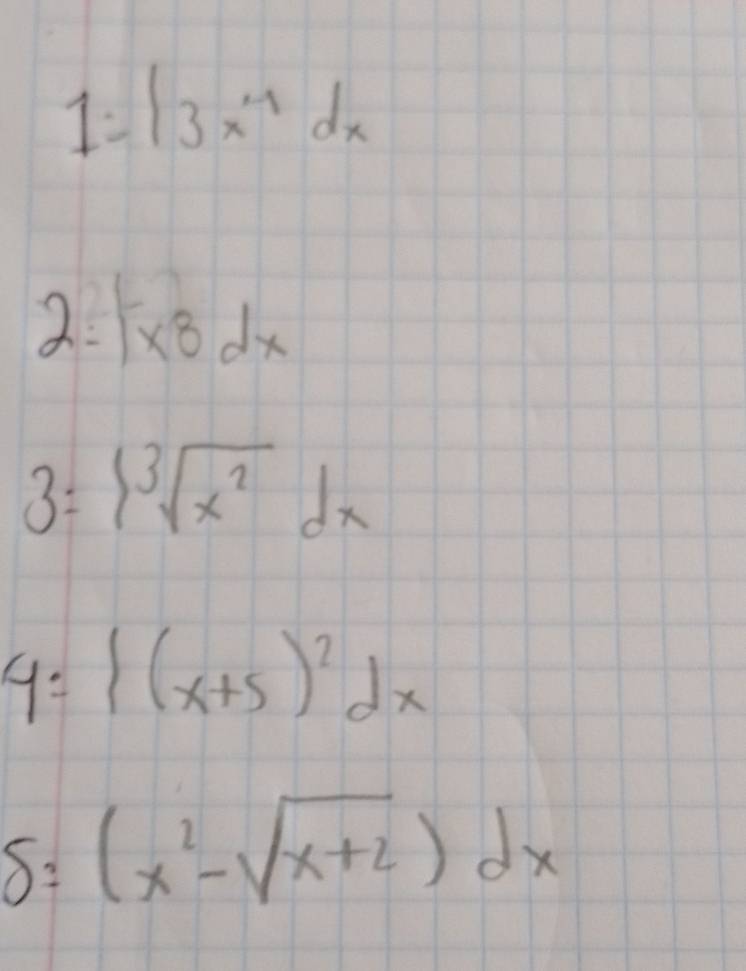 1= ∫ 3x⁻¹ dx
2= ∫ x8 dx
3= ∫ ³√x² dx
4= ∫ (x+5)² dx
5= (x² - √x+2) dx